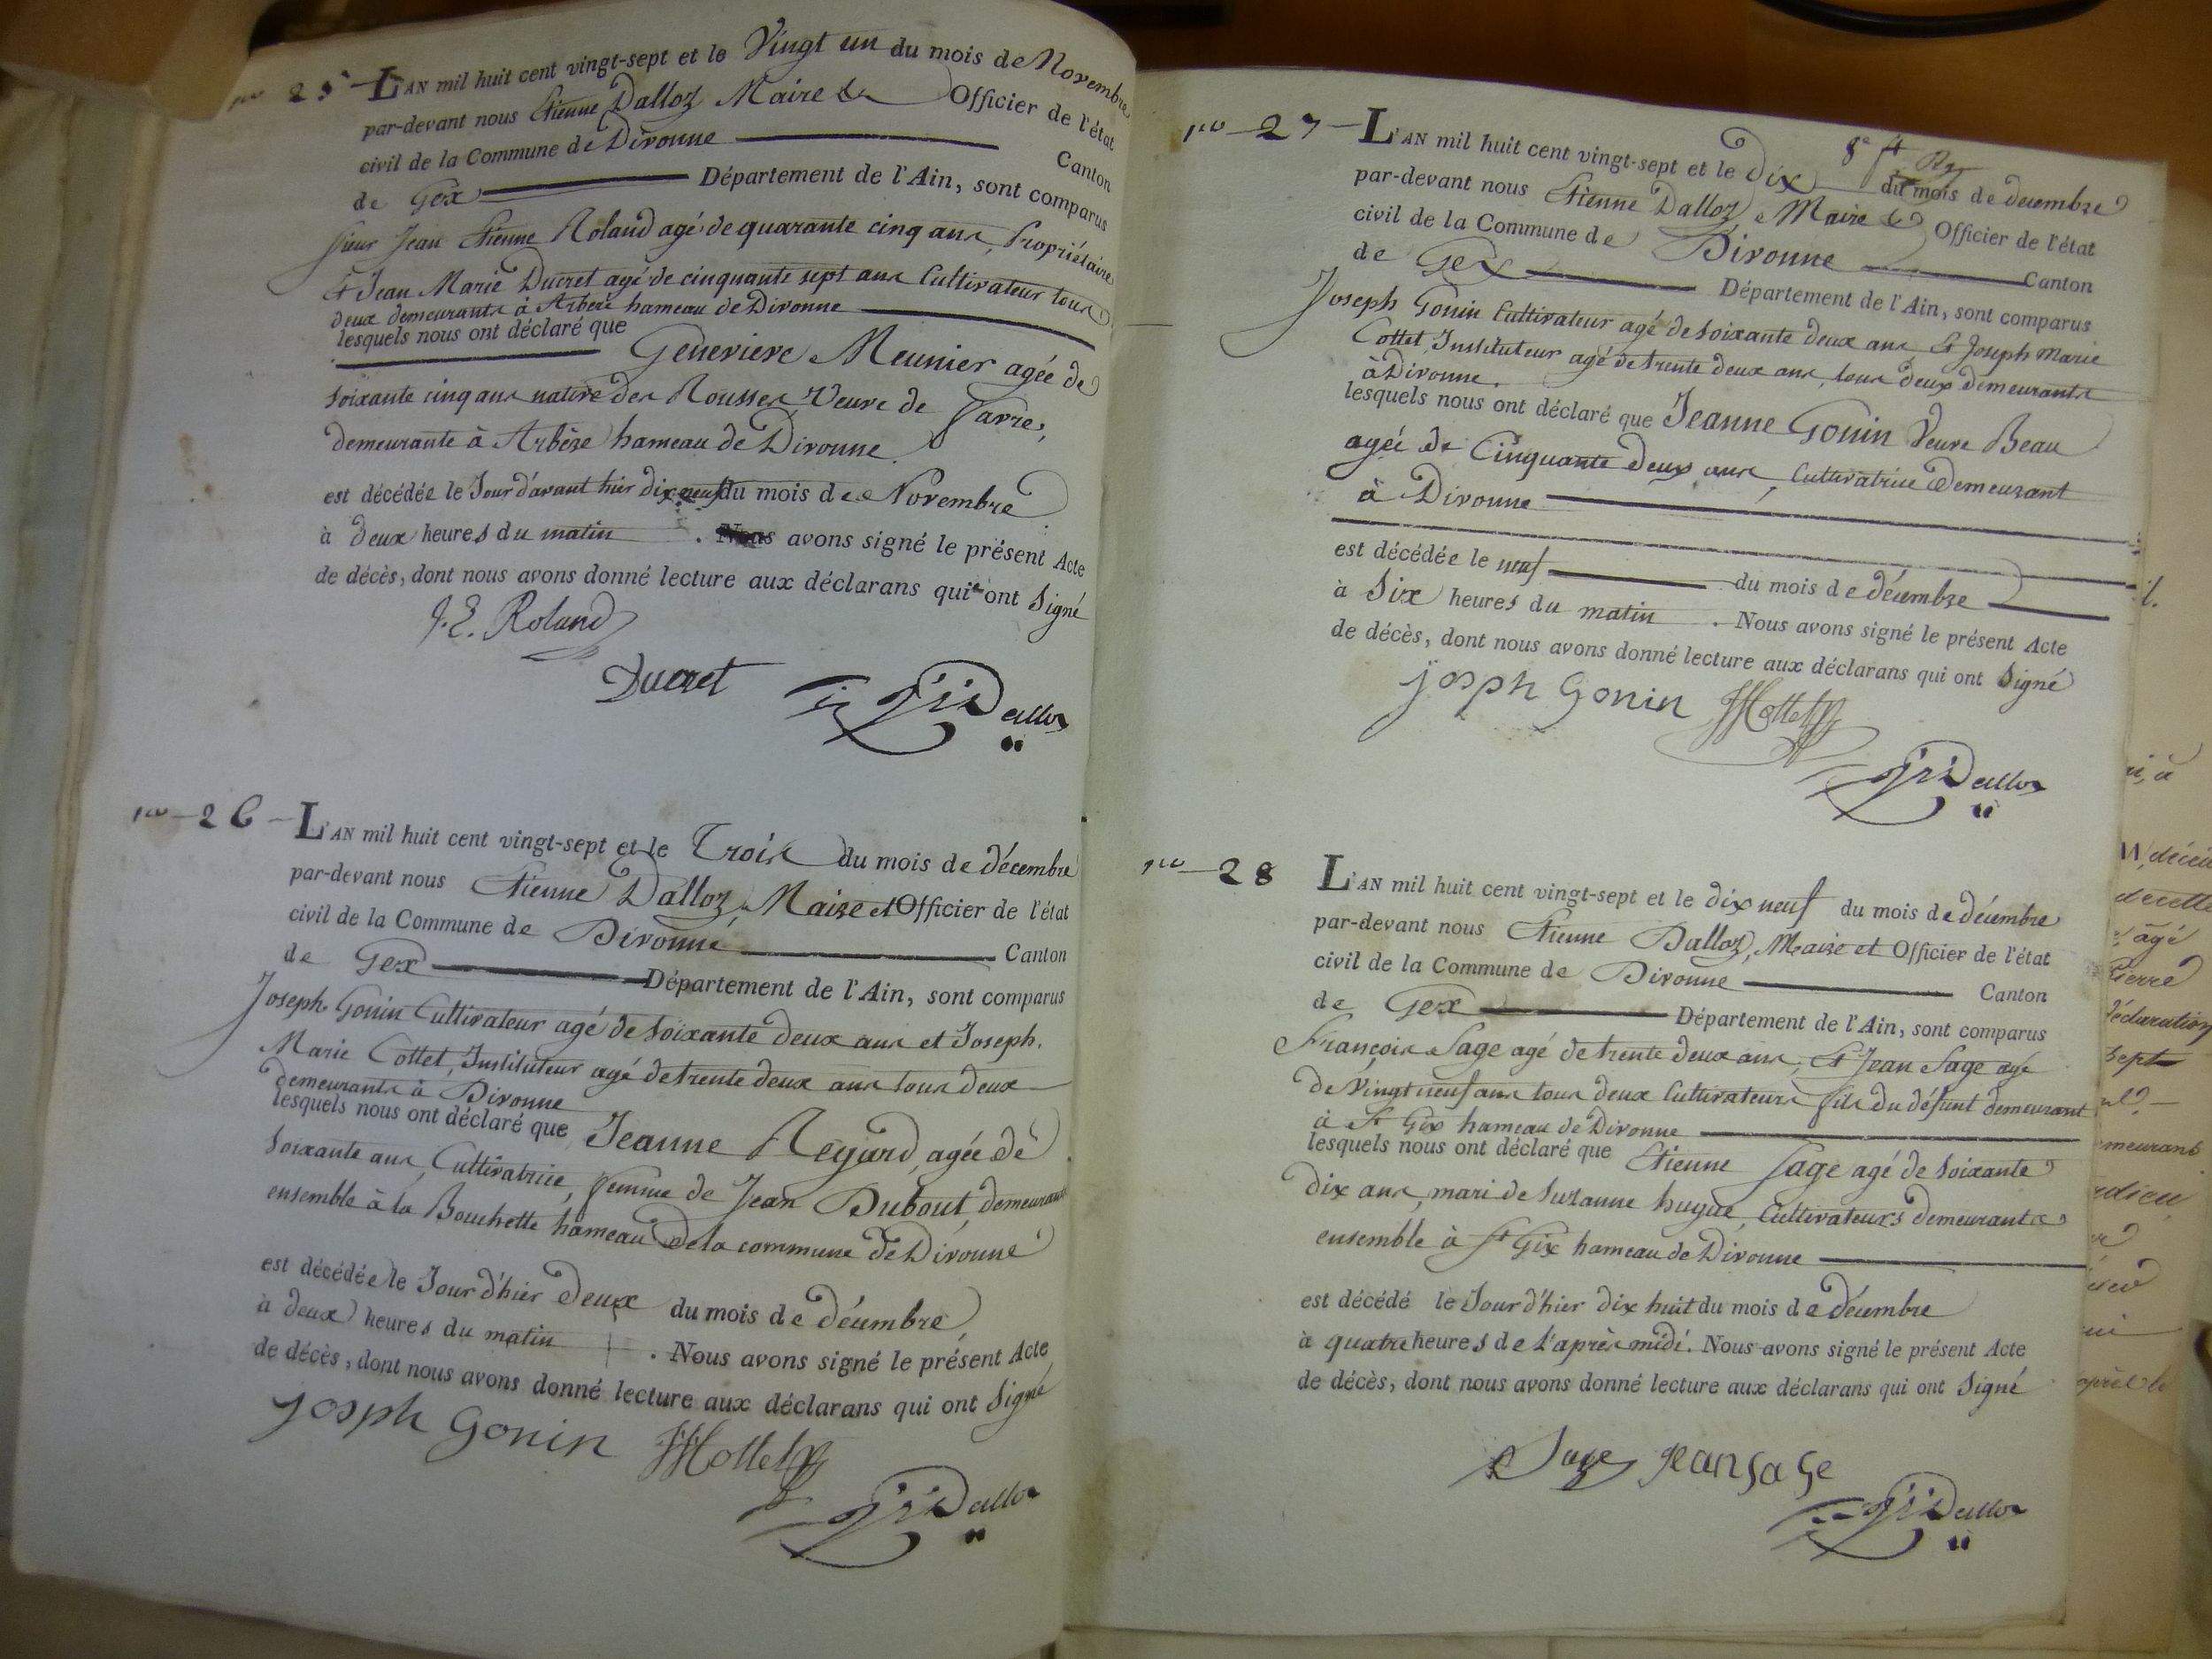 no 25 L'AN mil huit cent vingt-sept et le Vingt un du mois de Novembre
par-devant nous Etienne Dalloz Maire & Officier de l'état
civil de la Commune de Divonne Canton
de Gex Département de l'Ain, sont comparus
Sieur Jean Etienne Roland agé de quarante cinq ans, Propriétaire
Et Jean Marie Ducret agé de cinquante sept ans Cultivateur tous
deux demeurants à Arbere hameau de Divonne
lesquels nous ont déclaré que
Genevieve Meunier agée de
soixante cinq ans native des Rousses, Veuve de
demeurante à Arbère hameau de Divonne
est décédée le Jour d'avant hier dix neuf du mois de Novembre
à deux heures du matin . Nous avons signé le présent Acte
de décès, dont nous avons donné lecture aux déclarans qui ont Signé
J. E. Roland
Ducret
Dalloz
no 26 L'AN mil huit cent vingt-sept et le Trois du mois de décembre
par-devant nous Etienne Dalloz, Maire et Officier de l'état
civil de la Commune de Divonne Canton
de Gex Département de l'Ain, sont comparus
Joseph Gonin Cultivateur agé de soixante deux ans et Joseph
Marie Cottet, Instituteur agé de trente deux ans tous deux
demeurants à Divonne
lesquels nous ont déclaré que Jeanne Regard, agée de
soixante ans, Cultivatrice, femme de Jean Dubout, demeurans
ensemble à la Bouchette hameau de la commune de Divonne
est décédée le Jour d'hier deux du mois de décembre
à deux heures du matin . Nous avons signé le présent Acte
de décès, dont nous avons donné lecture aux déclarans qui ont Signé
josph Gonin JMCottet
Dalloz
no 27 L'AN mil huit cent vingt-sept et le Dix du mois de decembre
par-devant nous Etienne Dalloz Maire & Officier de l'état
civil de la Commune de Divonne Canton
de Gex Département de l'Ain, sont comparus
Joseph Gonin Cultivateur agé de soixante deux ans Et Joseph Marie
Cottet, Instituteur agé de trente deux ans, tous deux demeurants
à Divonne.
lesquels nous ont déclaré que Jeanne Gonin Veuve Beau
agée de Cinquante deux ans, Cultivatrice Demeurant
à Divonne
est décédée le neuf du mois de décembre
à Six heures du matin . Nous avons signé le présent Acte
de décès, dont nous avons donné lecture aux déclarans qui ont Signé
josph Gonin JMCottet
Dalloz
no 28 L'AN mil huit cent vingt-sept et le dix neuf du mois de décembre
par-devant nous Etienne Dalloz, Maire et Officier de l'état
civil de la Commune de Divonne Canton
de Gex Département de l'Ain, sont comparus
François Sage agé de trente deux ans, Et Jean Sage agé
de Vingt neuf ans tous deux Cultivateurs fils du défunt demeurant
à St Gix hameau de Divonne
lesquels nous ont déclaré que Etienne Sage agé de soixante
dix ans, mari de Suzanne hugue, Cultivateurs demeurants
ensemble à St Gix hameau de Divonne
est décédé le Jour d'hier dix huit du mois de décembre
à quatre heures de l'après midi. Nous avons signé le présent Acte
de décès, dont nous avons donné lecture aux déclarans qui ont Signé
Sage jean sage
Dalloz